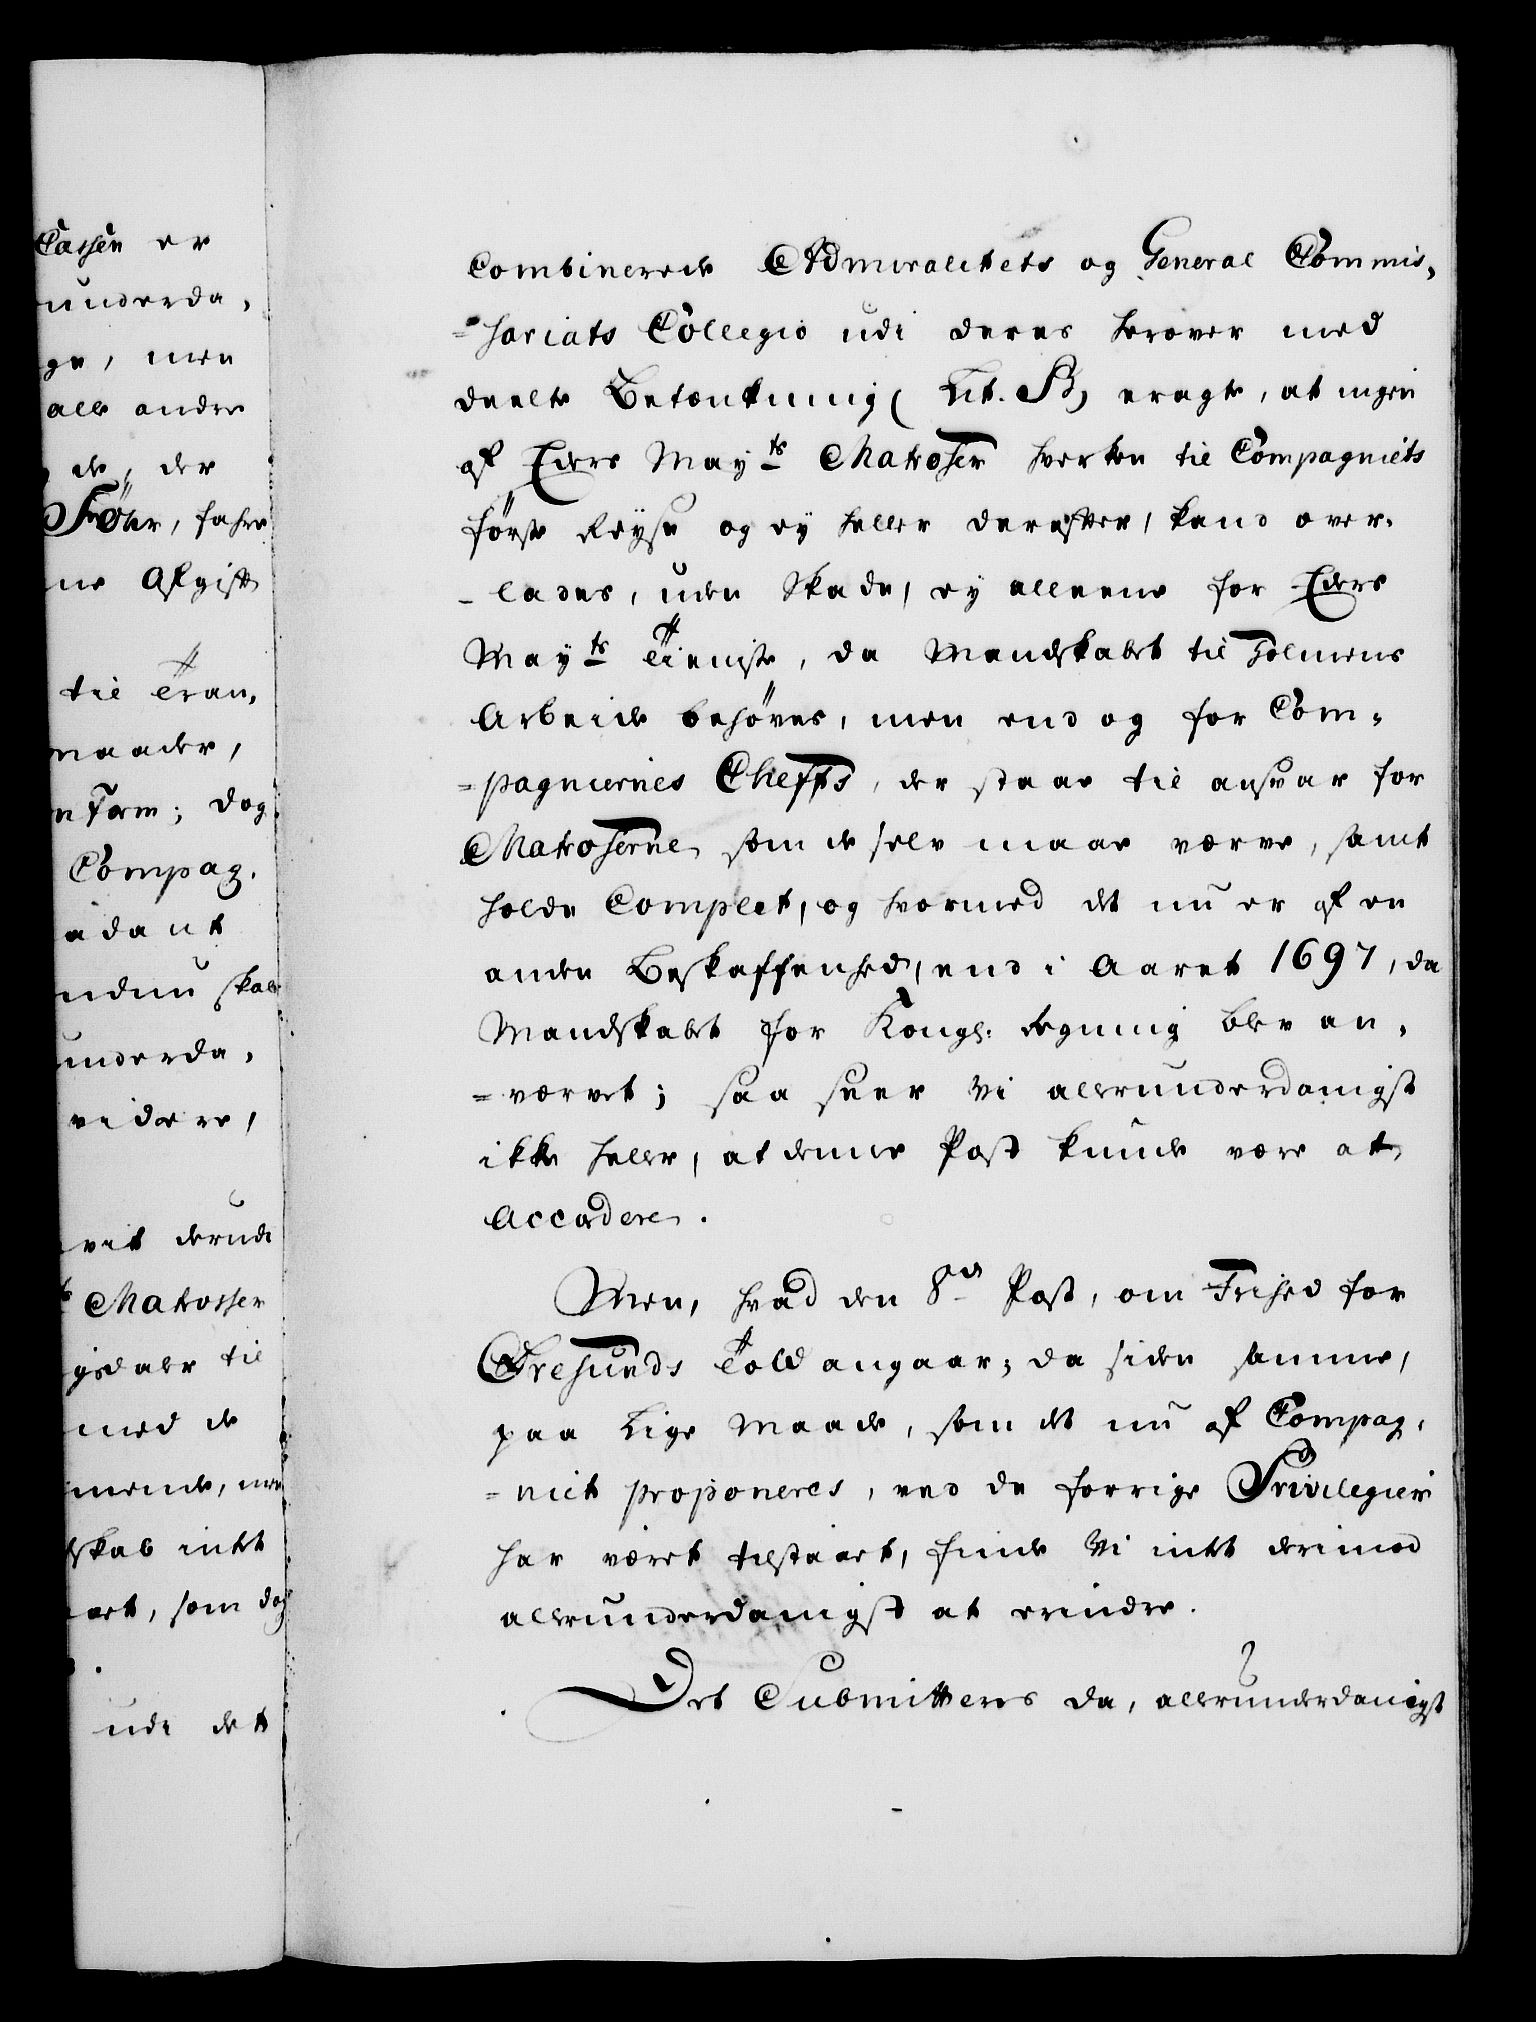 Cassen er
underda,
ge, men
alle andre
de, der
Föhr, fahre
ne Afgift
til Tran,
maader,
n Form; dog
Compag,
adant
ndnu skal
underda,
videre,
vit derude
Matrosser
gsdaler til
med de
mende, men
skab intet
ært, som dog
udi det
Combinerede Admiralitets og General Commis,
=sariats Collegio udi deres herover med
deelte Betænkning (Lit. B) eragte, at ingen
af Eders Mayts Matroser hverken til Compagniets
förste Reyse og ey heller derefter, kand over-
-lades, uden Skade, ey alleene for Eders
Mayts Tieniste, da Mandskabet til Holmens
Arbeide behöves, men end og for Com=
=pagniernes Cheffs, der staae til ansvar for
Matroserne, som de selv maae værve, samt
holde Complet, og hvormed det nu er af en
anden Beskaffenhed, end i Aaret 1697, da
Mandskabet for Kongl: Regning blev an,
=værvet; saa seer Vi allerunderdanigst
ikke heller, at denne Post kunde være at
Accordere.
Men, hvad den 8de Post, om Frihed for
Öresunds Told angaar; da siden samme,
paa Lige Maade, som det nu af Compag,
=niet proponeres, ved de forrige Privilegier
har været tilstaaet, finde Vi intet derimod
allerunderdanigst at erindre.
Det Submitteres da, allerunderdanigst